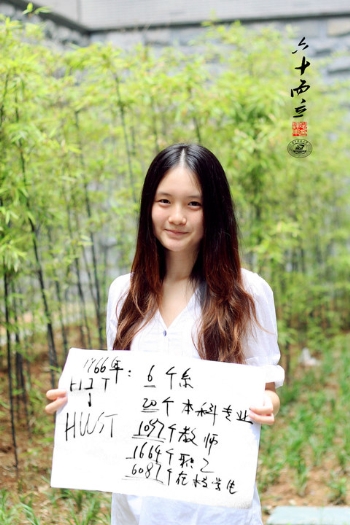 六十而立
1966年:
HIT
HUST
6个系
20个本科专业
1097个教师
1664个职工
6087个在校学生